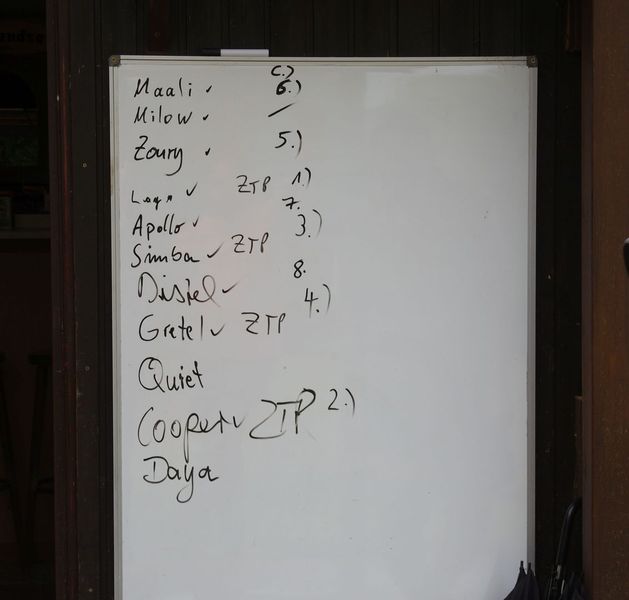 C.)
Maali ✓ 6.)
Milow ✓ /
Zoury ✓ 5.)
ZTP 1.)
7.
Apollo ✓ 3.)
Simba ✓ ZTP
8.
Distel ✓
4.)
Gretel ✓ ZTP
Quiet
Cooper ✓ ZTP 2.)
Daya